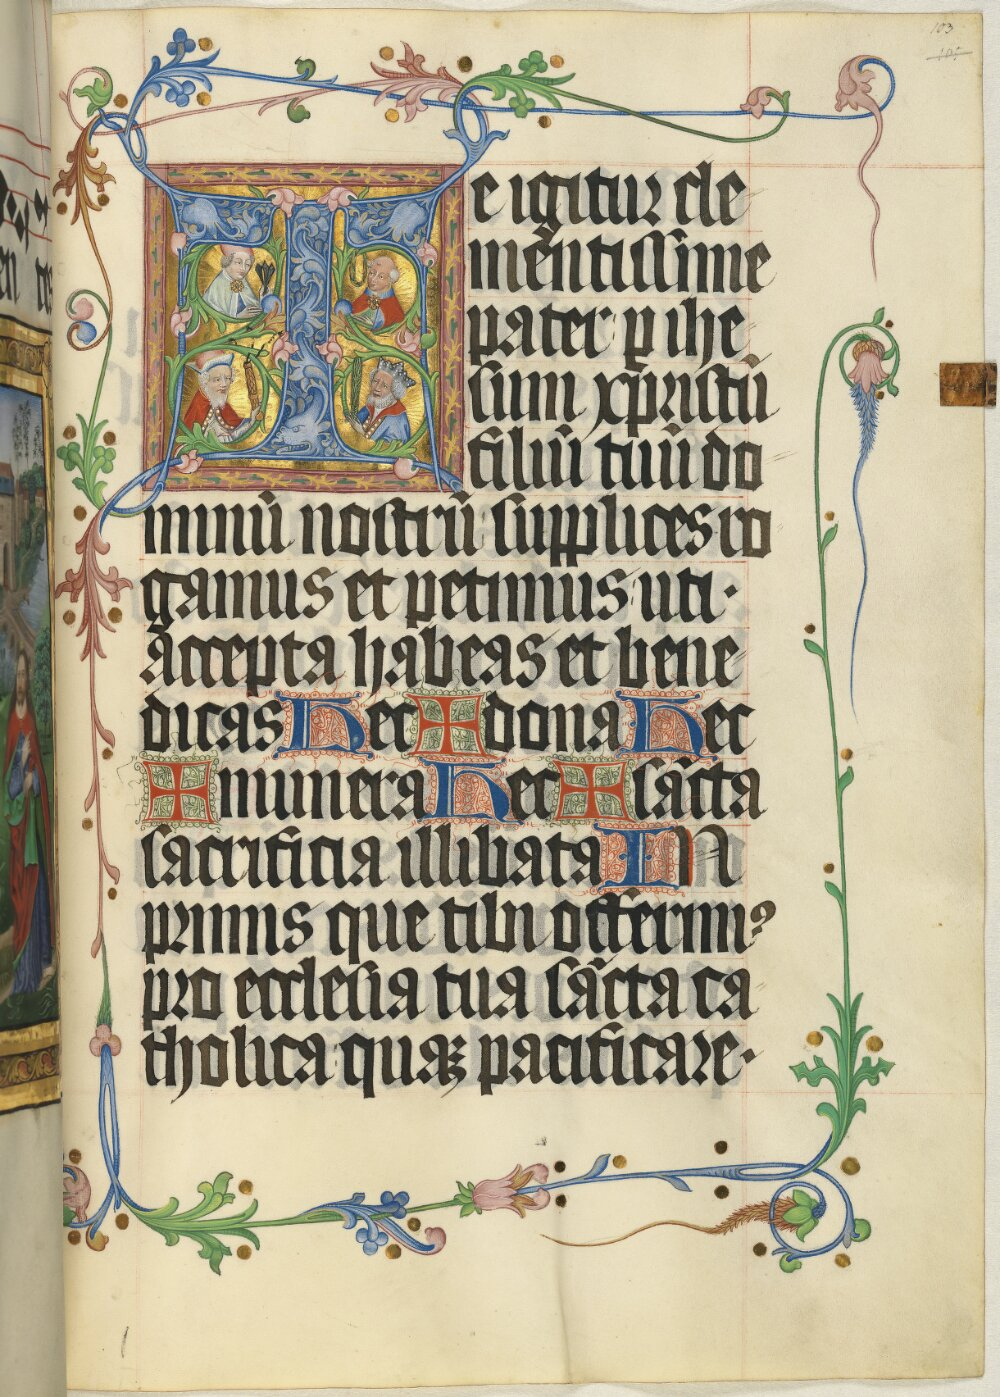 103
Te igitur cle
mentissime
pater p ihe
sum xpristū
filiū tuū do
minū nostrū supplices ro
gamus et petimus uti·
Accepta habeas et bene
dicas Hec ✠ dona Hec
✠ munera Hec ✠ sācta
sacrificia illibata IN
primis que tibi offerim⁹
pro ecclesia tua sācta ca
tholica quaꝫ pacificare·